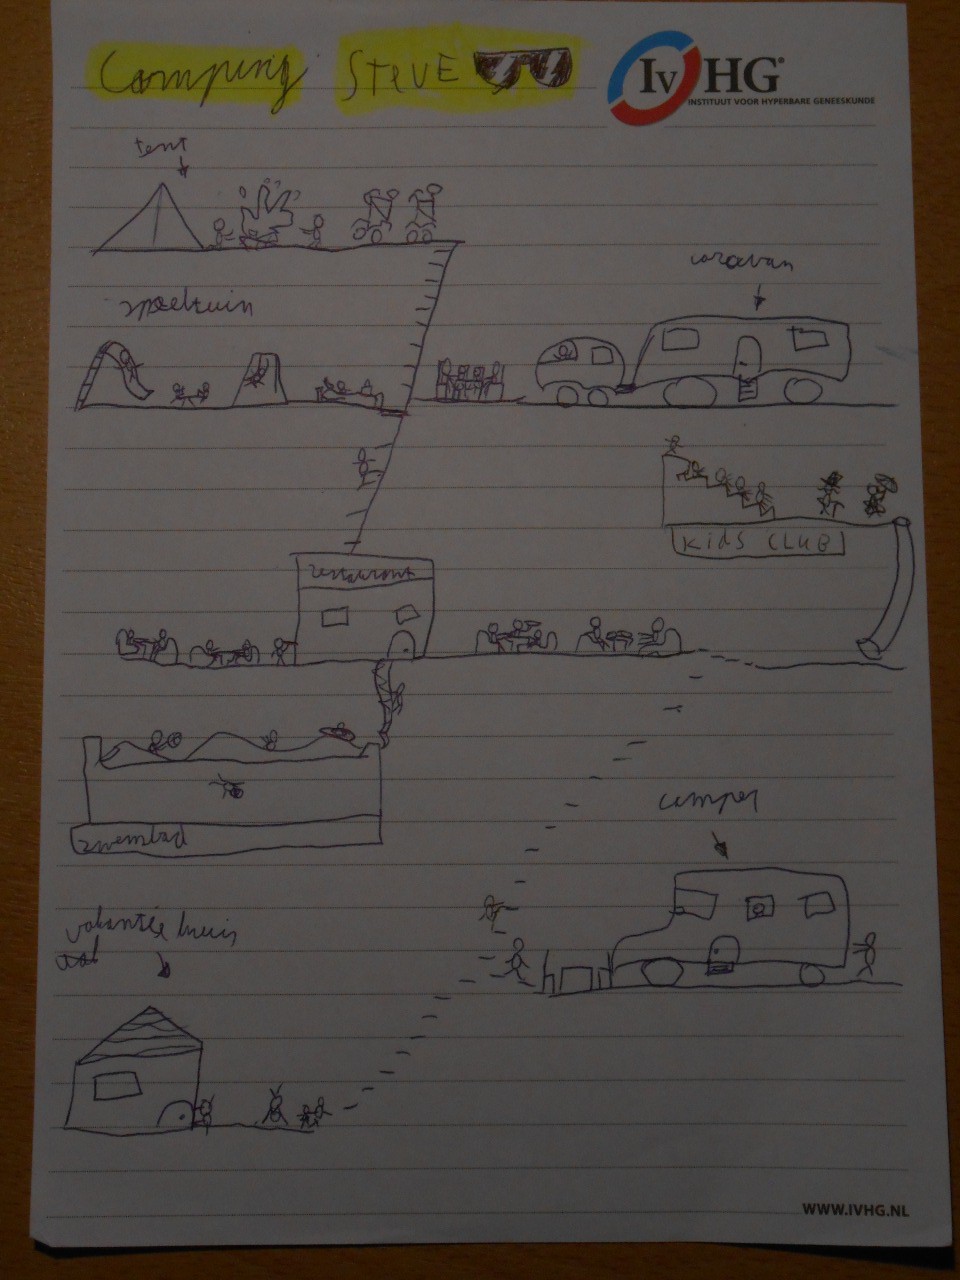 Camping STEVE
IvHG
INSTITUUT VOOR HYPERBARE GENEESKUNDE
tent
caravan
speeltuin
KidS CLUB
restaurant
camper
zwembad
vakantie huis
WWW.IVHG.NL